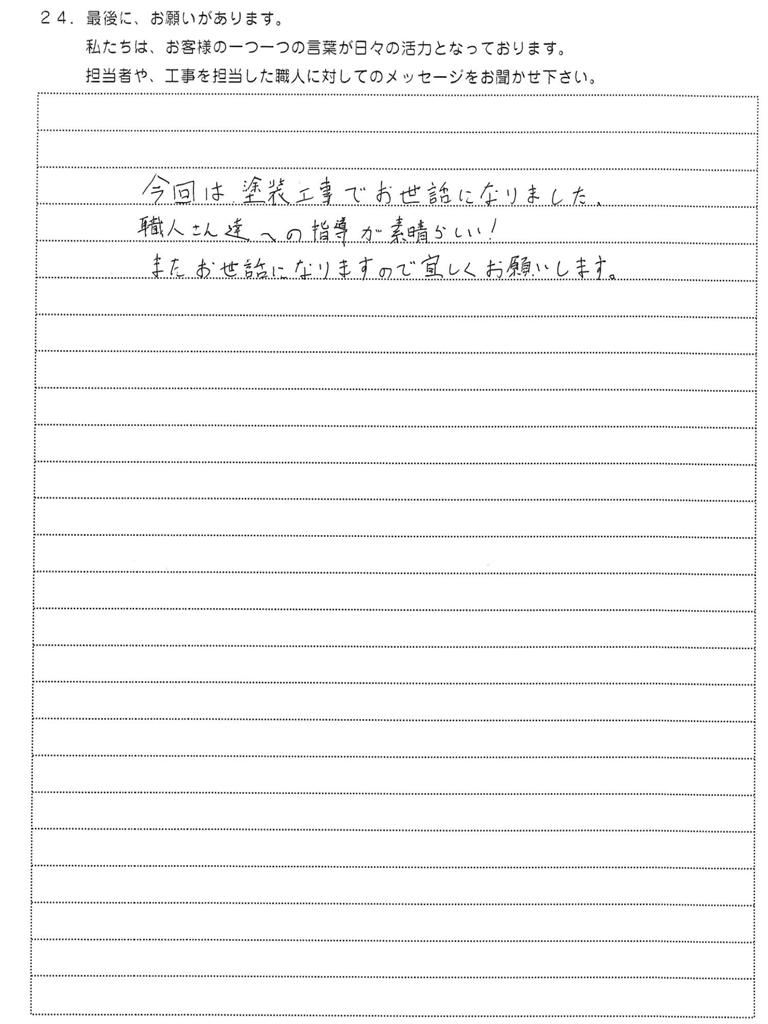 ２４．最後に、お願いがあります。
私たちは、お客様の一つ一つの言葉が日々の活力となっております。
担当者や、工事を担当した職人に対してのメッセージをお聞かせ下さい。
今回は塗装工事でお世話になりました、
職人さん達への指導が素晴らしい！
またお世話になりますので宜しくお願いします。